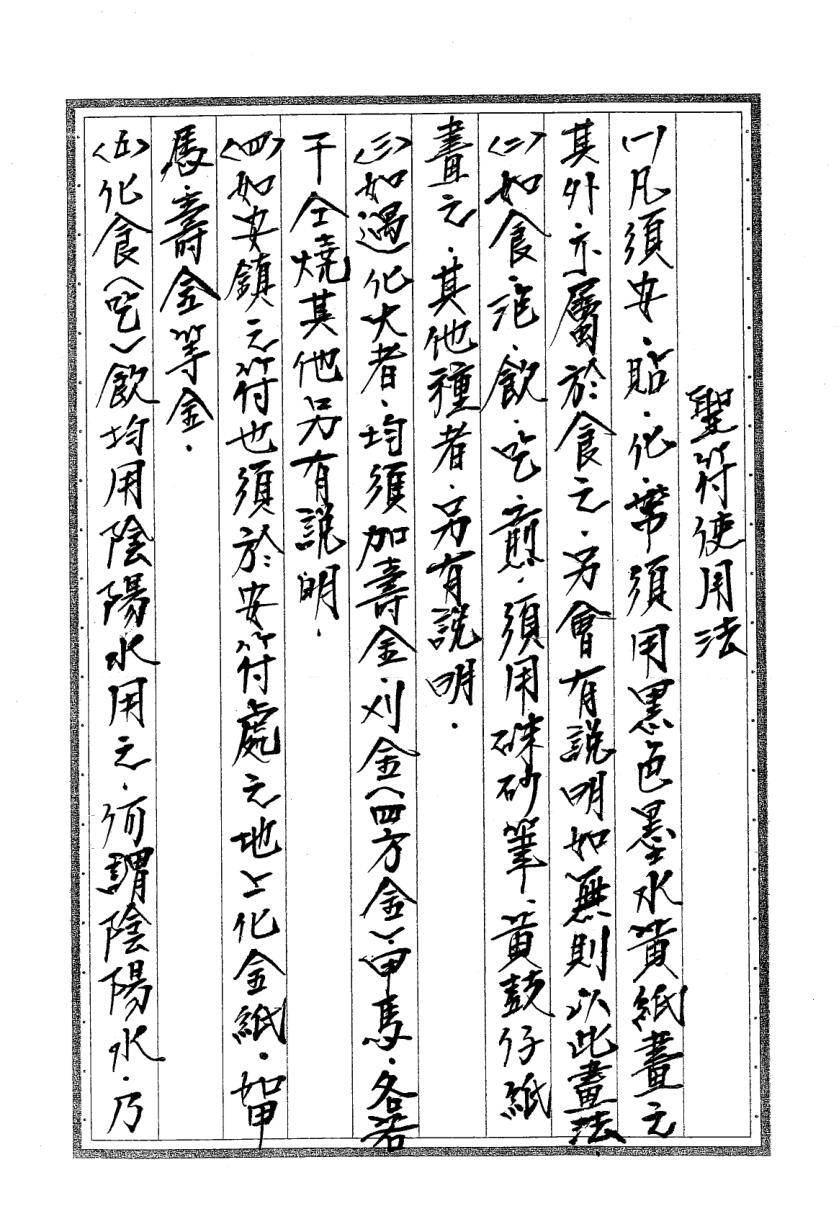 聖符使用法
(一)凡須安、貼、化、帶須用黑色墨水黃紙畫之
其外亦屬於食之、另會有說明如無則以此畫法
〈二〉如食、泡、飲、吃、煎、須用硃砂筆、黃鼓仔紙
畫之、其他種者、另有說明、
〈三〉如過化大者、均須加壽金、刈金〈四方金〉、甲馬、各若
干仝燒其他另有說明、
〈四〉如安鎮之符也須於安符處之地上化金紙、如甲
馬、壽金等金、
〈五〉化食〈吃〉飲均用陰陽水用之、何謂陰陽水、乃